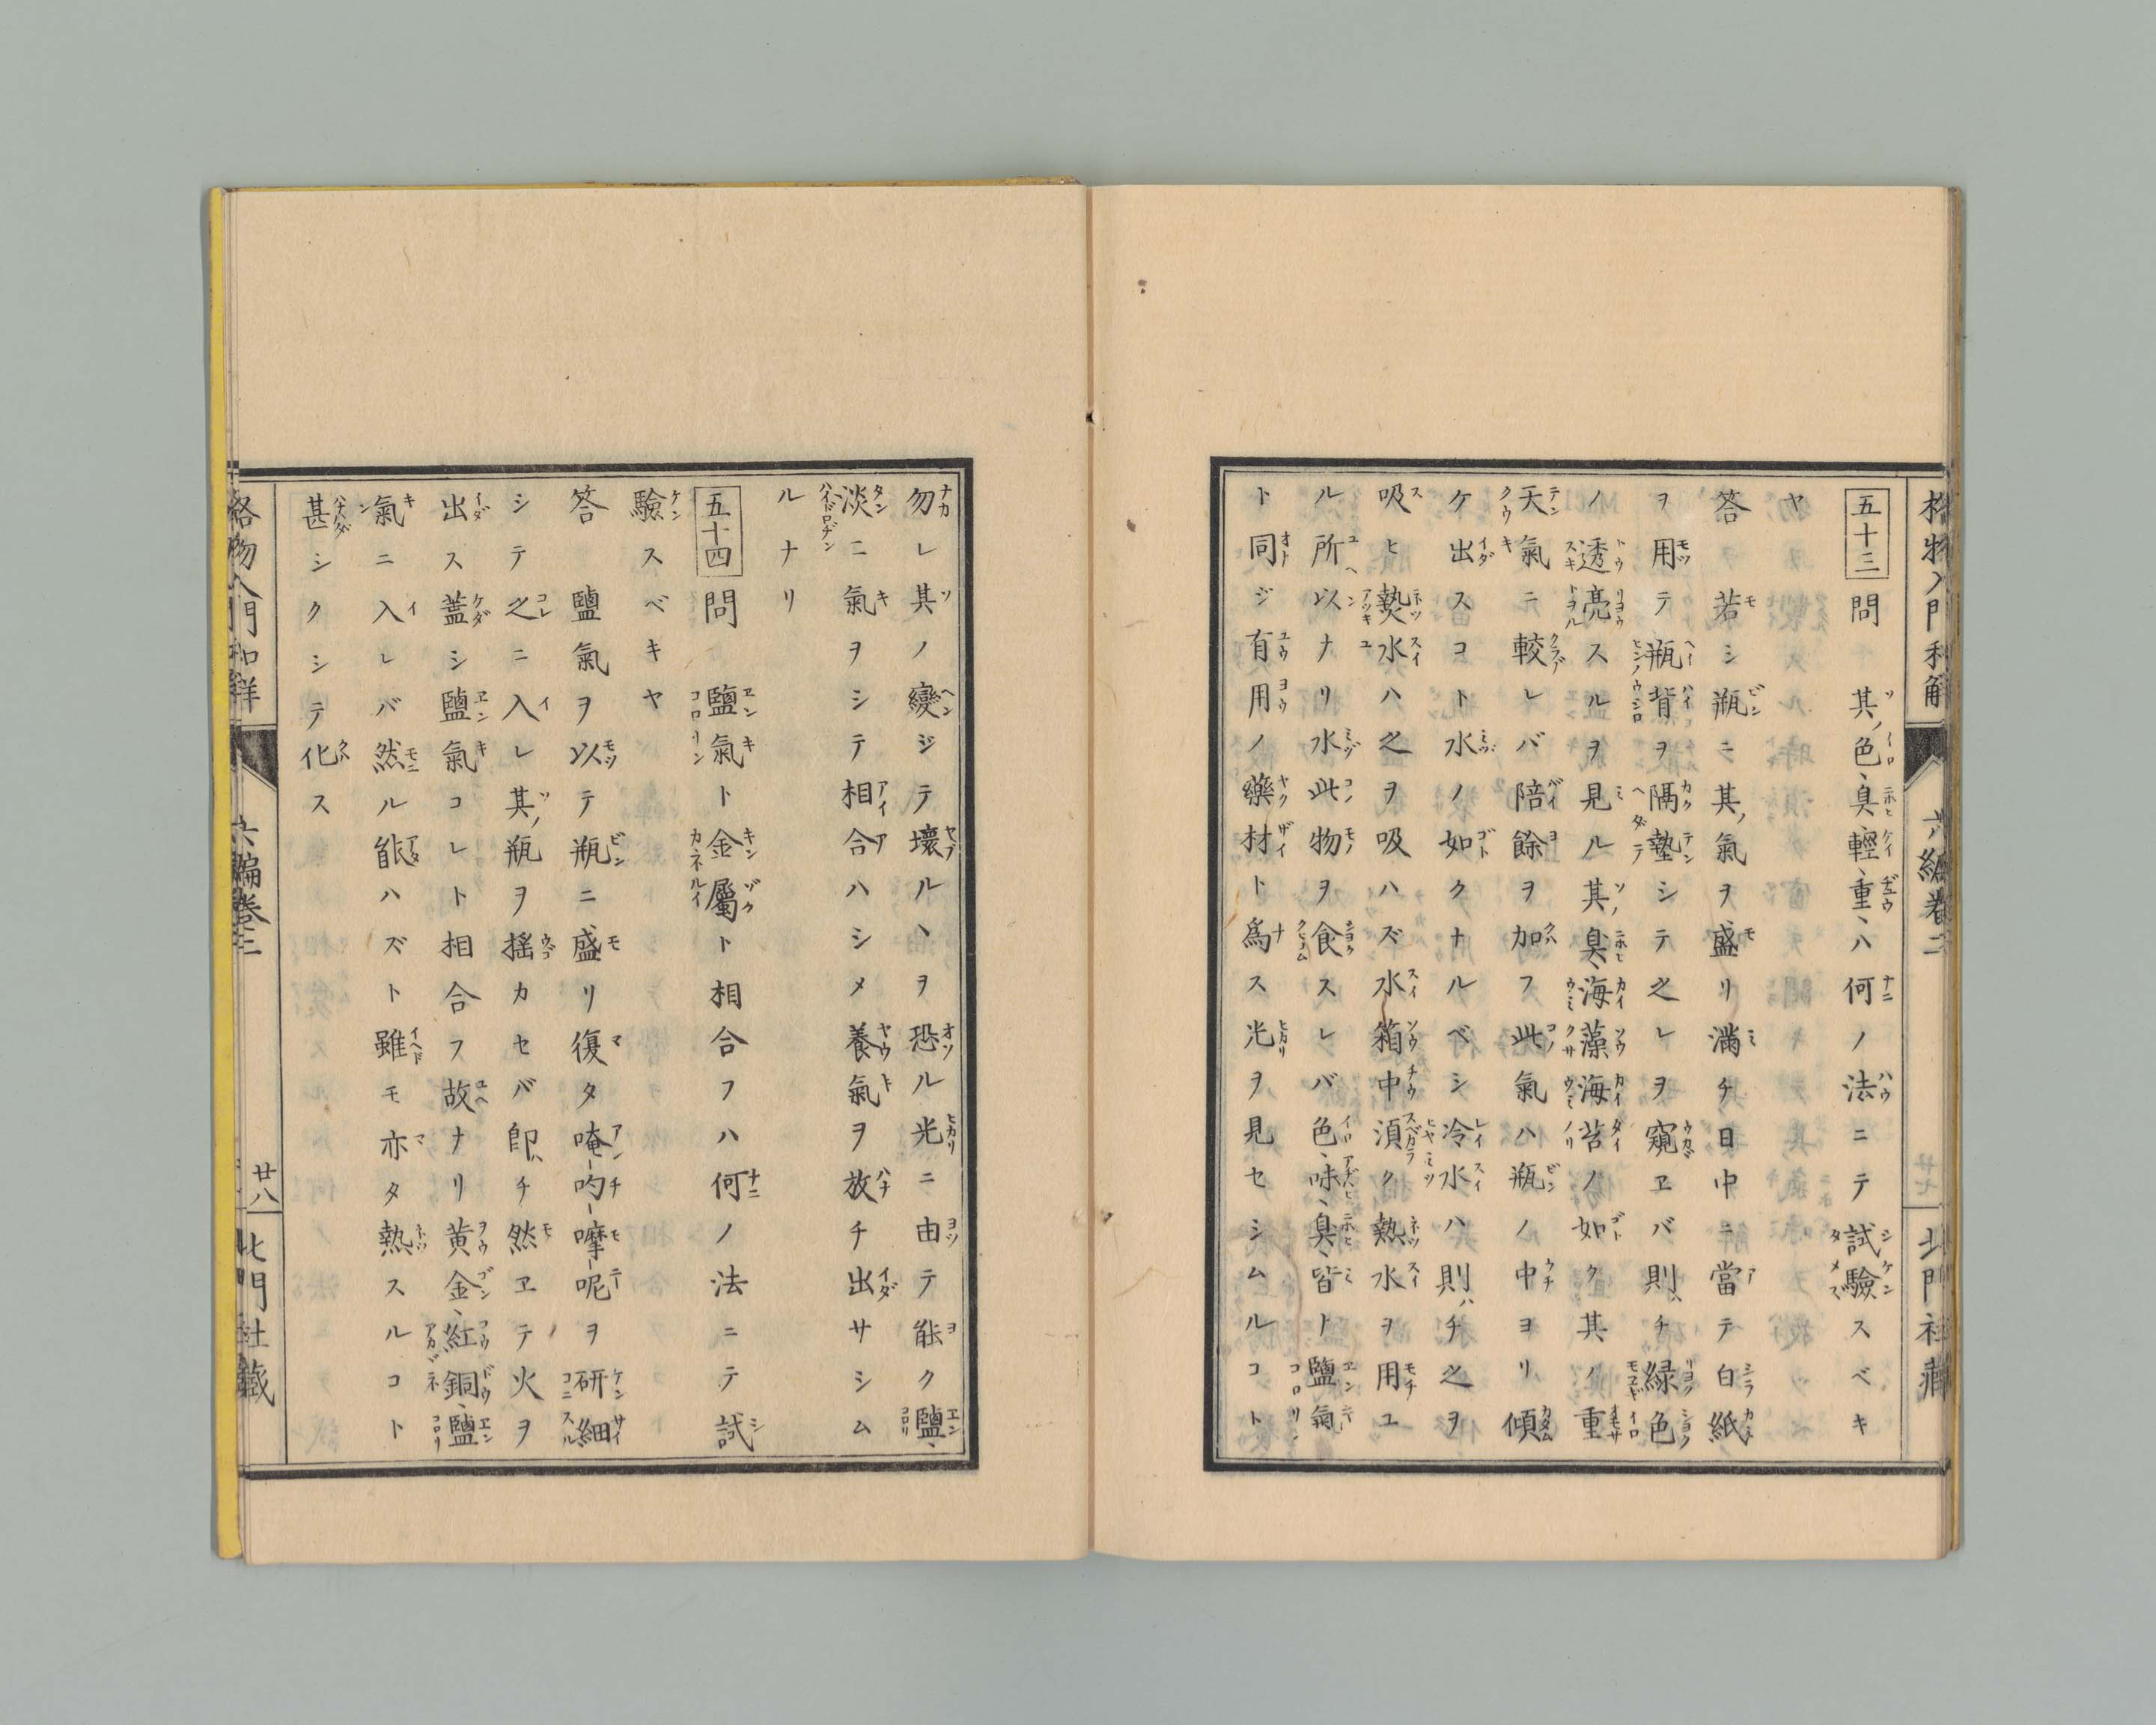 格物入門和解
六編卷二
北門社藏
五十三 問 其ノ色、臭、輕、重、ハ何ノ法ニテ試驗スベキ
ヤ
答 若シ瓶ニ其ノ氣ヲ盛リ滿チ日中ニ當テ白紙
ヲ用テ瓶背ヲ隔墊シテ之レヲ窺ヱバ則チ緑色
ノ透亮スルヲ見ル其ノ臭、海藻海苔ノ如ク其ノ重
天氣ニ較レバ陪餘ヲ加フ此氣ハ瓶ノ中ヨリ傾
ケ出スコト水ノ如クナルベシ冷水ハ則チ之ヲ
吸ヒ熱水ハ之ヲ吸ハズ水箱中須ク熱水ヲ用ユ
ル所以ナリ水此物ヲ食スレバ色、味、臭、皆ト鹽氣
ト同ジ有用ノ藥材ト爲ス光ヲ見セシムルコト
勿レ其ノ變ジテ壞ルヽヲ恐ル光ニ由テ能ク鹽、
淡ニ氣ヲシテ相合ハシメ養氣ヲ放チ出サシム
ルナリ
五十四 問 鹽氣ト金屬ト相合フハ何ノ法ニテ試
驗スベキヤ
答 鹽氣ヲ以テ瓶ニ盛リ復タ唵-啲-嚤-呢ヲ研細
シテ之ニ入レ其ノ瓶ヲ搖カセバ即チ然ヱテ火ヲ
出ス蓋シ鹽氣コレト相合フ故ナリ黄金、紅銅、鹽
氣ニ入レバ然ル能ハズト雖モ亦タ熱スルコト
甚シクシテ化ス
格物入門和解
六編卷二
廿八
北門社藏